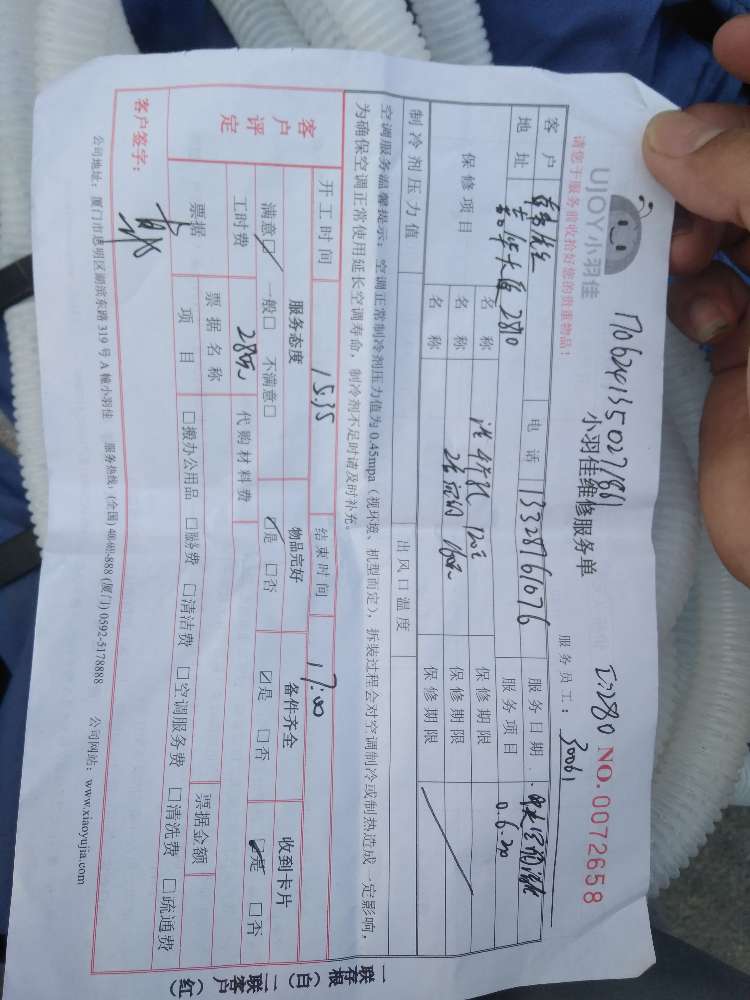 1706241350271881
UJOY小羽佳
小羽佳维修服务单
NO.0072658
请您于服务前收拾好您的贵重物品!
服务员工: 30061
客户
电话 13328761076
服务日期
地址 嘉华大厦 2810
服务项目
保修项目
名称
保修期限
名称
保修期限
名称
保修期限
制冷剂压力值
出风口温度
空调服务温馨提示: 空调正常制冷剂压力值为 0.45mpa (视环境、机型而定), 拆装过程会对空调制冷或制热造成一定影响,
为确保空调正常使用延长空调寿命, 制冷剂不足时请及时补充。
开工时间 15:35
结束时间 17:00
客户评定
服务态度
物品完好
备件齐全
收到卡片
满意☑ 一般□ 不满意□
☑是 □否
☑是 □否
☑是 □否
工时费 280元
代购材料费
票据
票据名称
票据金额
项目
□搬办公用品 □服务费 □清洁费 □空调服务费 □清洗费 □疏通费
客户签字:
公司地址: 厦门市思明区湖滨东路 319 号 A 幢小羽佳
服务热线: (全国) 4040-888 (厦门) 0592-5178888
公司网站: www.xiaoyujia.com
一联存根(白) 二联客户(红)